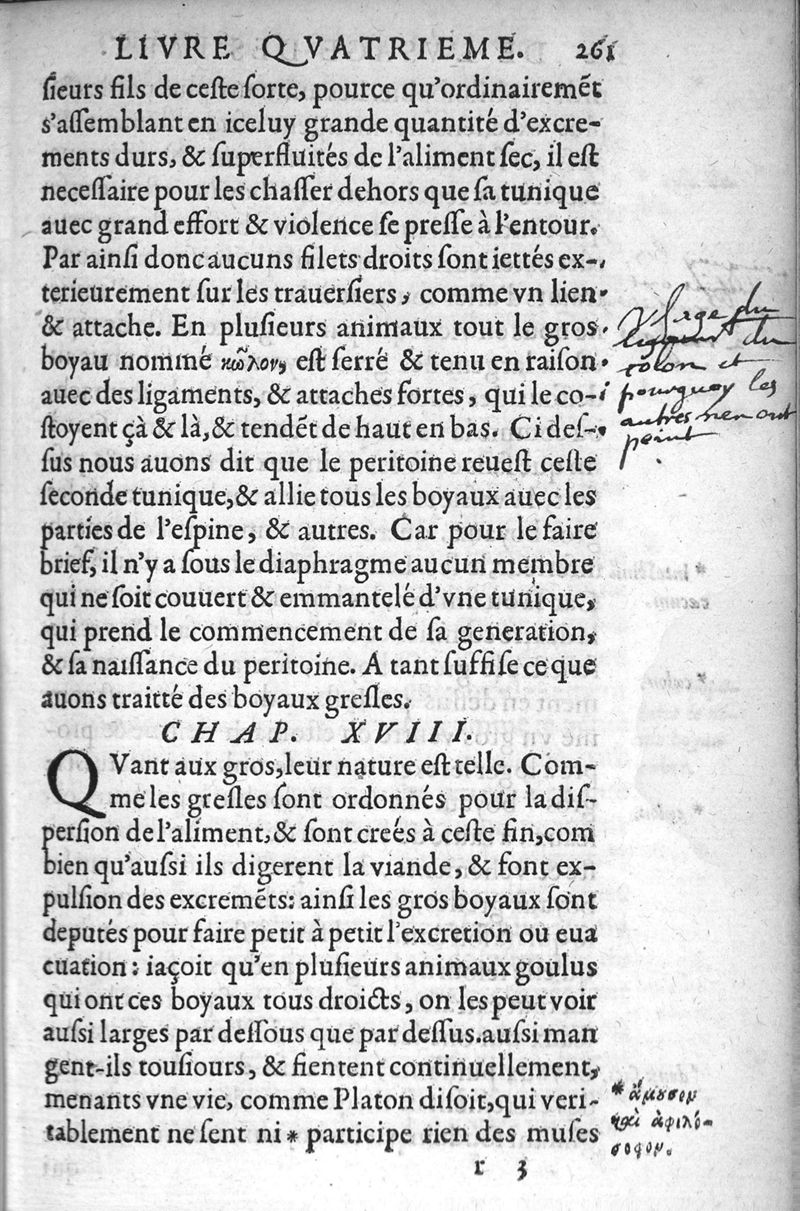 LIVRE QVATRIEME. 261
ſieurs fils de ceſte ſorte, pource qu'ordinairemẽt
s'aſſemblant en iceluy grande quantité d'excre-
ments durs, & ſuperfluités de l'aliment ſec, il eſt
neceſſaire pour les chaſſer dehors que ſa tunique
auec grand effort & violence ſe preſſe à l'entour.
Par ainſi donc aucuns filets droits ſont iettés ex-
terieurement ſur les trauerſiers, comme vn lien
& attache. En pluſieurs animaux tout le gros
boyau nommé κῶλον, eſt ſerré & tenu en raiſon
auec des ligaments, & attaches fortes, qui le co-
ſtoyent çà & là, & tendẽt de haut en bas. Ci deſ-
ſus nous auons dit que le peritoine reueſt ceſte
ſeconde tunique, & allie tous les boyaux auec les
parties de l'eſpine, & autres. Car pour le faire
brief, il n'y a ſous le diaphragme aucun membre
qui ne ſoit couuert & emmantelé d'vne tunique,
qui prend le commencement de ſa generation,
& ſa naiſſance du peritoine. A tant ſuffiſe ce que
auons traitté des boyaux greſles.
CHAP. XVIII.
QVant aux gros, leur nature eſt telle. Com-
me les greſles ſont ordonnés pour la diſ-
perſion de l'aliment, & ſont creés à ceſte fin, com
bien qu'auſsi ils digerent la viande, & font ex-
pulſion des excremẽts: ainſi les gros boyaux ſont
deputés pour faire petit à petit l'excretion ou eua
cuation: iaçoit qu'en pluſieurs animaux goulus
qui ont ces boyaux tous droicts, on les peut voir
auſsi larges par deſſous que par deſſus. auſsi man
gent-ils touſiours, & fientent continuellement,
menants vne vie, comme Platon diſoit, qui veri-
tablement ne ſent ni * participe rien des muſes
r 3
vſage du
ligament du
colon et
pourquoy les
autres nen ont
point
* ἄμουσον
καὶ ἀφιλό-
σοφον.